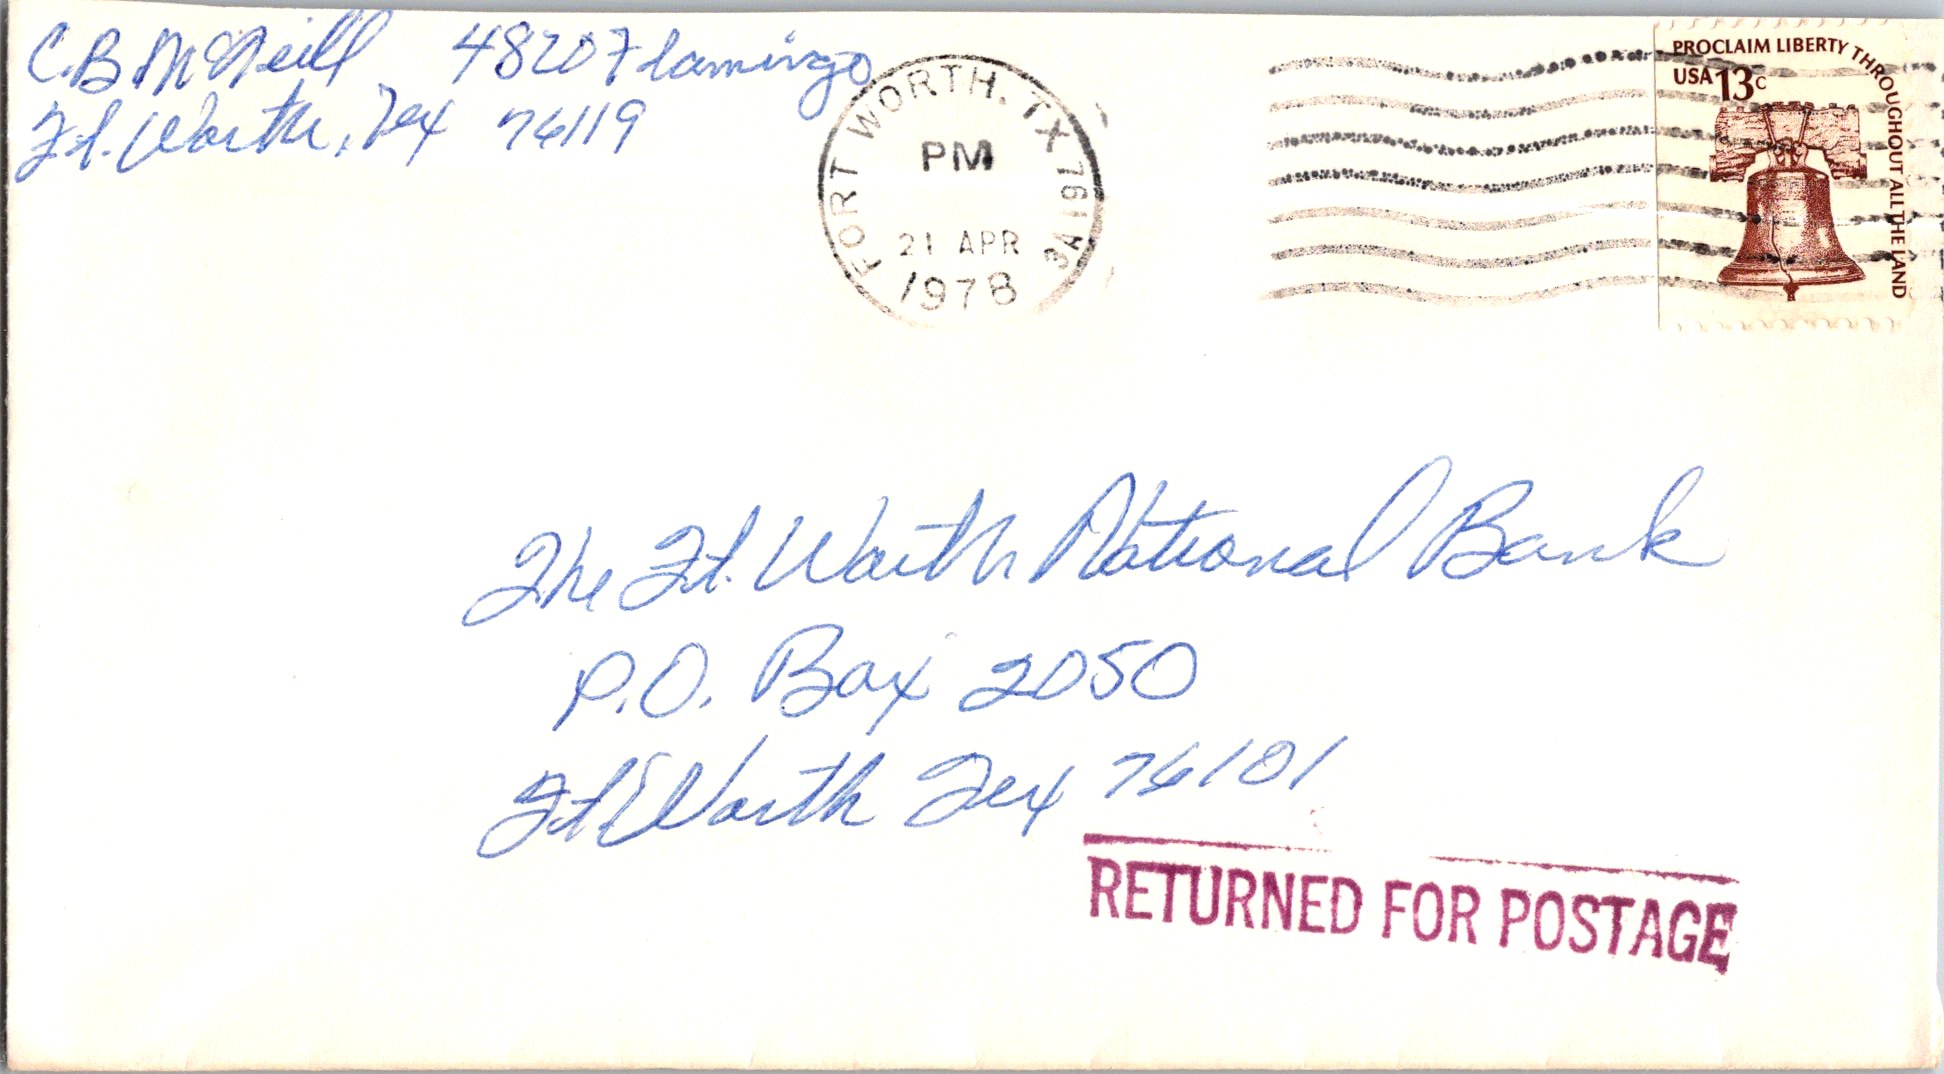 C.B McNeill 4820 Flamingo
Ft. Worth, Tex 76119
FORT WORTH, TX 761
PM
21 APR
1978
PROCLAIM LIBERTY THROUGHOUT ALL THE LAND
USA 13c
The Ft. Worth National Bank
P.O. Box 2050
Ft Worth Tex 76101
RETURNED FOR POSTAGE